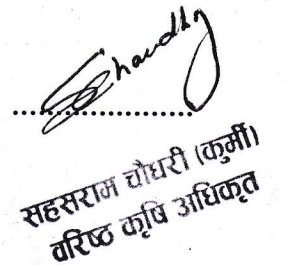 Chaudhry
सहसराम चौधरी (कुर्मी)
वरिष्ठ कृषि अधिकृत